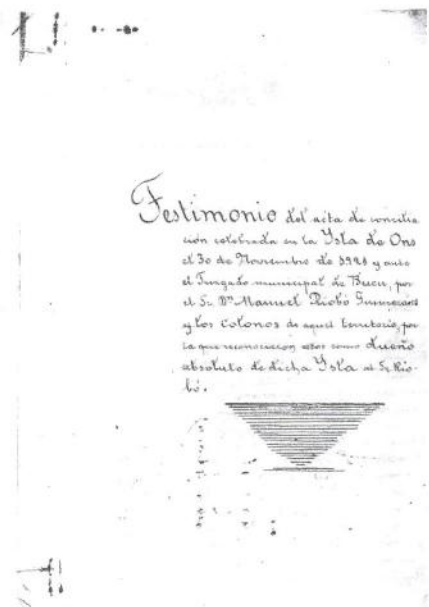 Testimonio del acta de concilia
ción celebrada en la Ysla de Ons
el 30 de Noviembre de 1929 y ante
el Juzgado municipal de Bueu, por
el Sr. Dn. Manuel Riobó Guimerans
y los colonos de aquel territorio, por
la que reconocieron estos como dueño
absoluto de dicha Ysla al Sr. Rio-
bó.